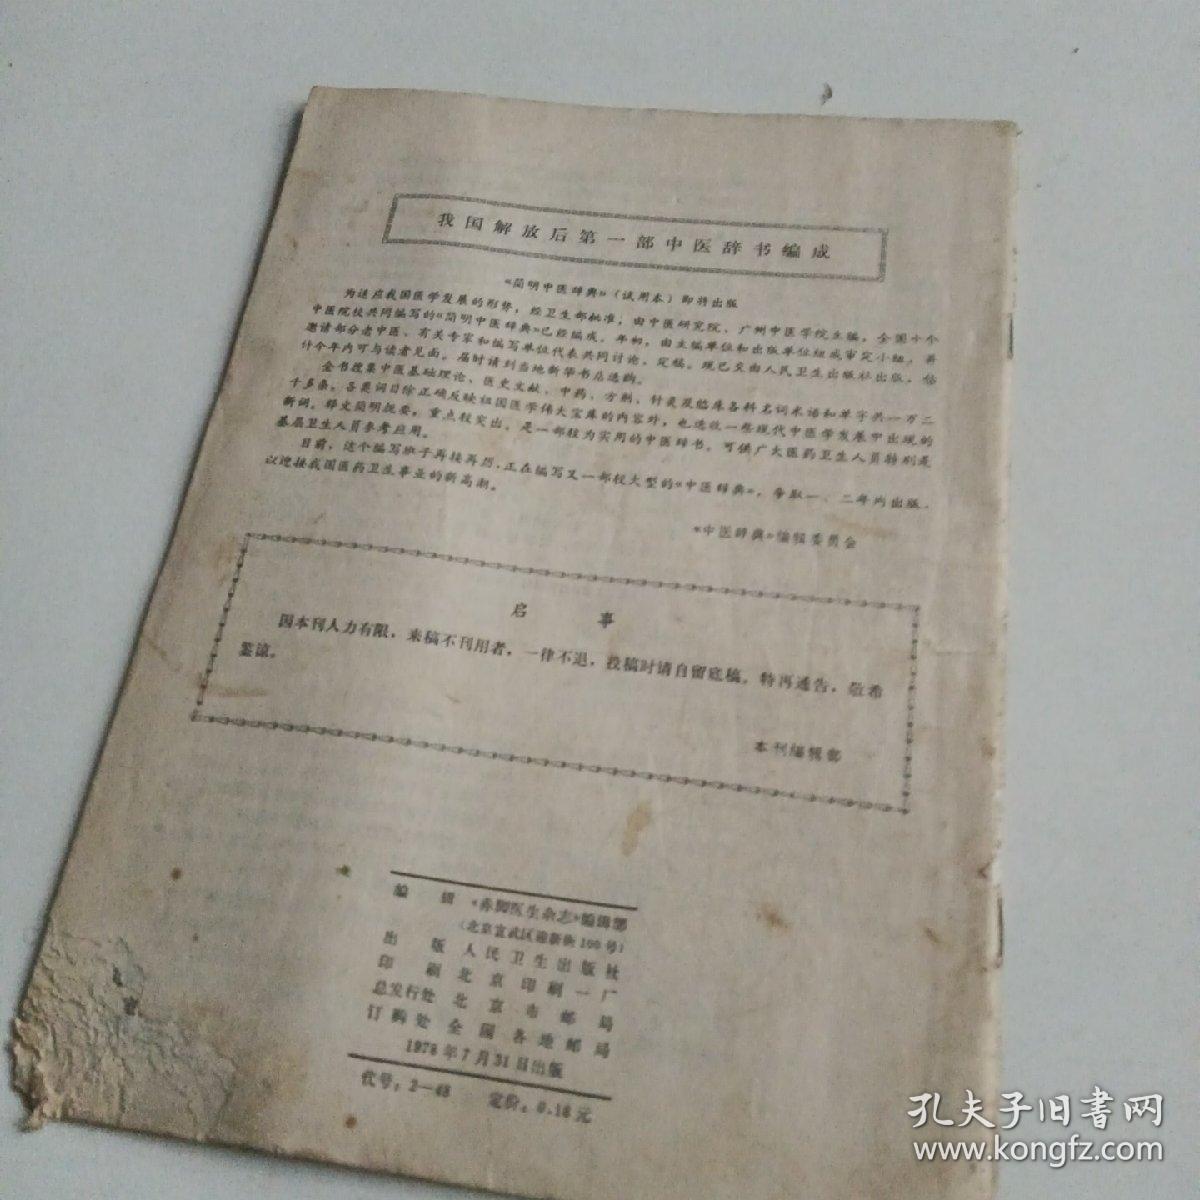 我国解放后第一部中医辞书编成
《简明中医辞典》（试用本）即将出版
为适应我国医学发展的形势，经卫生部批准，由中医研究院、广州中医学院主编，全国十个
中医院校共同编写的《简明中医辞典》已经编成。年初，由主编单位和出版单位组成审定小组，并
邀请部分老中医、有关专家和编写单位代表共同讨论，定稿。现已交由人民卫生出版社出版，估
计今年内可与读者见面。届时请到当地新华书店选购。
全书搜集中医基础理论、医史文献、中药、方剂、针灸及临床各科名词术语和单字共一万二
千多条。各类词目除正确反映祖国医学伟大宝库的内容外，也选收一些现代中医学发展中出现的
新词。释文简明扼要，重点较突出，是一部较为实用的中医辞书，可供广大医药卫生人员特别是
基层卫生人员参考应用。
目前，这个编写班子再接再厉，正在编写又一部较大型的《中医辞典》，争取一、二年内出版，
以迎接我国医药卫生事业的新高潮。
《中医辞典》编辑委员会
启事
因本刊人力有限，来稿不刊用者，一律不退，投稿时请自留底稿。特再通告，敬希
鉴谅。
本刊编辑部
编辑《赤脚医生杂志》编辑部
（北京宣武区迎新街100号）
出版人民卫生出版社
印刷北京印刷一厂
总发行处北京市邮局
订购处全国各地邮局
1978年7月31日出版
代号：2—48 定价：0.18元
孔夫子旧书网
www.kongfz.com